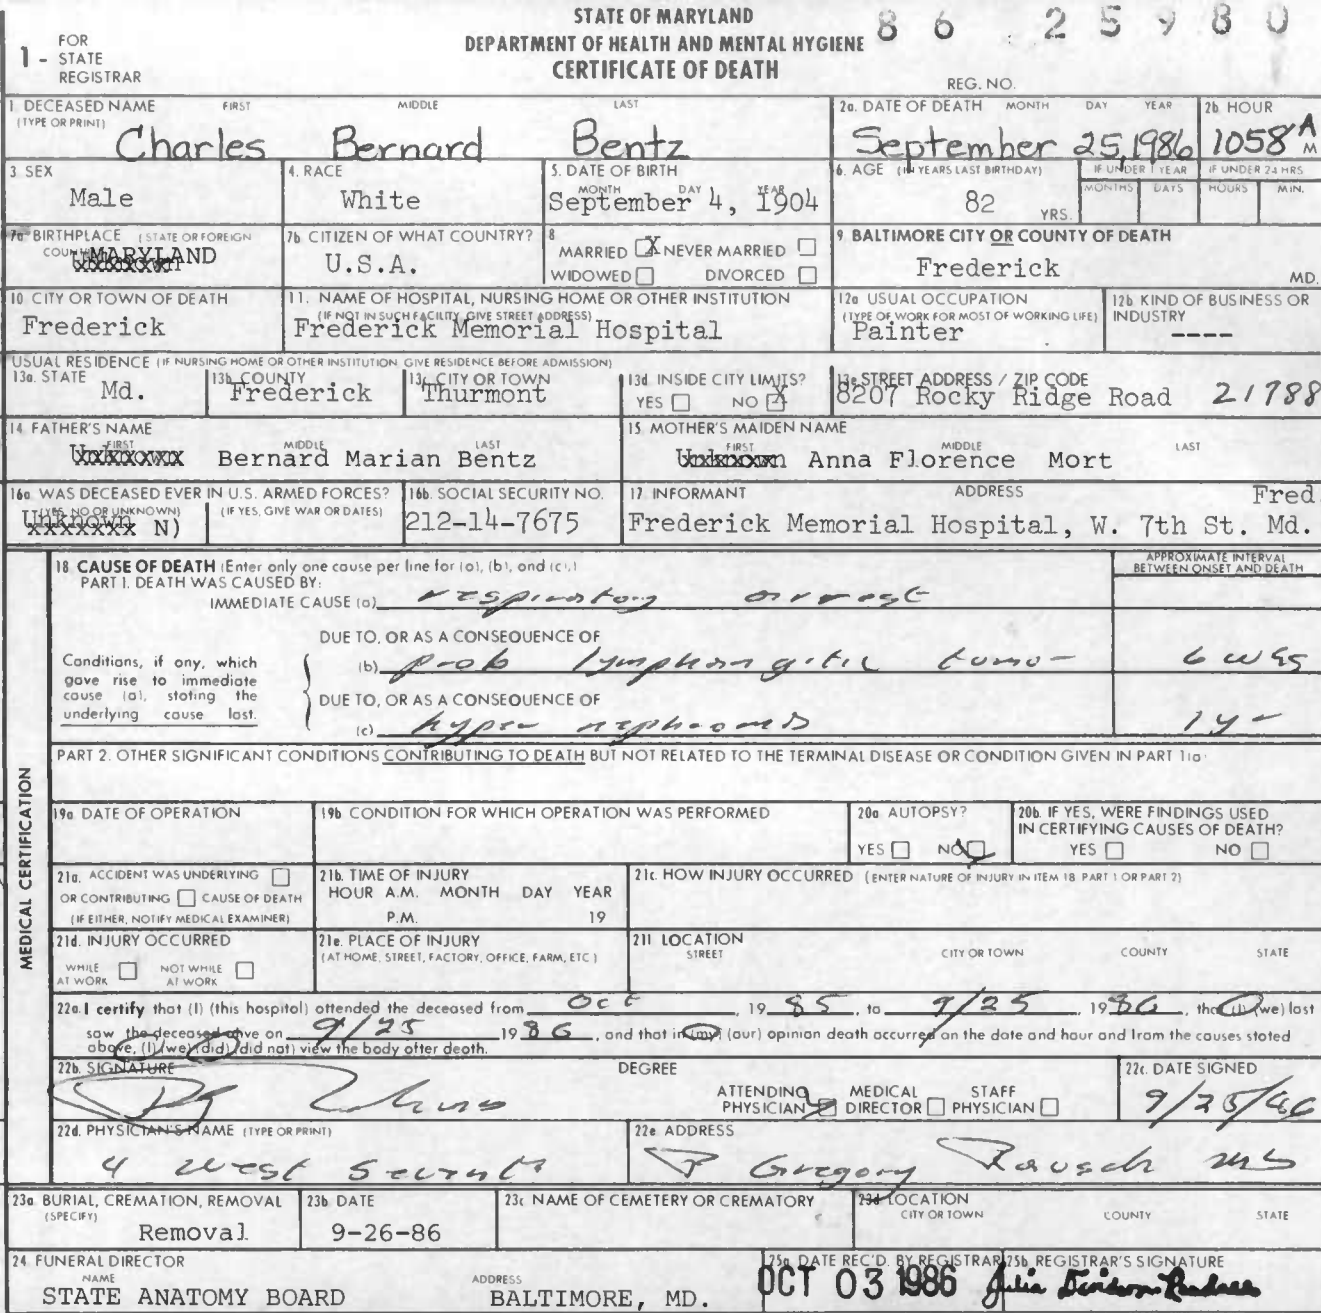 STATE OF MARYLAND
DEPARTMENT OF HEALTH AND MENTAL HYGIENE
CERTIFICATE OF DEATH
86 25980
1 - FOR STATE REGISTRAR
REG. NO.
1. DECEASED NAME (TYPE OR PRINT) FIRST MIDDLE LAST
Charles Bernard Bentz
2a. DATE OF DEATH MONTH DAY YEAR
September 25, 1986
2b. HOUR
1058 A M
3. SEX
Male
4. RACE
White
5. DATE OF BIRTH MONTH DAY YEAR
September 4, 1904
6. AGE (IN YEARS LAST BIRTHDAY)
82 YRS.
IF UNDER 1 YEAR MONTHS DAYS
IF UNDER 24 HRS HOURS MIN.
7a. BIRTHPLACE (STATE OR FOREIGN COUNTRY)
Unknown MARYLAND
7b. CITIZEN OF WHAT COUNTRY?
U.S.A.
8. MARRIED X NEVER MARRIED
WIDOWED DIVORCED
9. BALTIMORE CITY OR COUNTY OF DEATH
Frederick MD.
10. CITY OR TOWN OF DEATH
Frederick
11. NAME OF HOSPITAL, NURSING HOME OR OTHER INSTITUTION
(IF NOT IN SUCH FACILITY, GIVE STREET ADDRESS)
Frederick Memorial Hospital
12a. USUAL OCCUPATION
(TYPE OF WORK FOR MOST OF WORKING LIFE)
Painter
12b. KIND OF BUSINESS OR INDUSTRY
----
USUAL RESIDENCE (IF NURSING HOME OR OTHER INSTITUTION GIVE RESIDENCE BEFORE ADMISSION)
13a. STATE
Md.
13b. COUNTY
Frederick
13c. CITY OR TOWN
Thurmont
13d. INSIDE CITY LIMITS?
YES NO X
13e. STREET ADDRESS / ZIP CODE
8207 Rocky Ridge Road 21788
14. FATHER'S NAME FIRST MIDDLE LAST
Unknown Bernard Marian Bentz
15. MOTHER'S MAIDEN NAME FIRST MIDDLE LAST
Unknown Anna Florence Mort
16a. WAS DECEASED EVER IN U.S. ARMED FORCES?
(YES, NO OR UNKNOWN) (IF YES, GIVE WAR OR DATES)
Unknown XXXXXXX N)
16b. SOCIAL SECURITY NO.
212-14-7675
17. INFORMANT ADDRESS
Frederick Memorial Hospital, W. 7th St. Fred. Md.
MEDICAL CERTIFICATION
18. CAUSE OF DEATH (Enter only one cause per line for (a), (b), and (c).)
APPROXIMATE INTERVAL BETWEEN ONSET AND DEATH
PART I. DEATH WAS CAUSED BY:
IMMEDIATE CAUSE (a) respiratory arrest
DUE TO, OR AS A CONSEQUENCE OF
(b) prob lymphangitic tumor 6 wks
DUE TO, OR AS A CONSEQUENCE OF
(c) hyper nephroma 1 yr
Conditions, if any, which gave rise to immediate cause (a), stating the underlying cause last.
PART 2. OTHER SIGNIFICANT CONDITIONS CONTRIBUTING TO DEATH BUT NOT RELATED TO THE TERMINAL DISEASE OR CONDITION GIVEN IN PART 1(a)
19a. DATE OF OPERATION
19b. CONDITION FOR WHICH OPERATION WAS PERFORMED
20a. AUTOPSY?
YES NO
20b. IF YES, WERE FINDINGS USED IN CERTIFYING CAUSES OF DEATH?
YES NO
21a. ACCIDENT WAS UNDERLYING
OR CONTRIBUTING CAUSE OF DEATH
(IF EITHER, NOTIFY MEDICAL EXAMINER)
21b. TIME OF INJURY
HOUR A.M. MONTH DAY YEAR
P.M. 19
21c. HOW INJURY OCCURRED (ENTER NATURE OF INJURY IN ITEM 18 PART 1 OR PART 2)
21d. INJURY OCCURRED
WHILE AT WORK NOT WHILE AT WORK
21e. PLACE OF INJURY
(AT HOME, STREET, FACTORY, OFFICE, FARM, ETC.)
21f. LOCATION
STREET CITY OR TOWN COUNTY STATE
22a. I certify that (I) (this hospital) attended the deceased from Oct, 1985, to 9/25 1986, that (I) (we) last
saw the deceased alive on 9/25 1986, and that in (my) (our) opinion death occurred on the date and hour and from the causes stated
above, (I) (we) (did) (did not) view the body after death.
22b. SIGNATURE DEGREE
ATTENDING PHYSICIAN MEDICAL DIRECTOR STAFF PHYSICIAN
22c. DATE SIGNED
9/25/86
22d. PHYSICIAN'S NAME (TYPE OR PRINT)
4 West Seventh
22e. ADDRESS
P Gregory Rausch MD
23a. BURIAL, CREMATION, REMOVAL (SPECIFY)
Removal
23b. DATE
9-26-86
23c. NAME OF CEMETERY OR CREMATORY
23d. LOCATION
CITY OR TOWN COUNTY STATE
24. FUNERAL DIRECTOR
NAME ADDRESS
STATE ANATOMY BOARD BALTIMORE, MD.
25a. DATE REC'D. BY REGISTRAR
OCT 03 1986
25b. REGISTRAR'S SIGNATURE
Julia Davidson-Randall